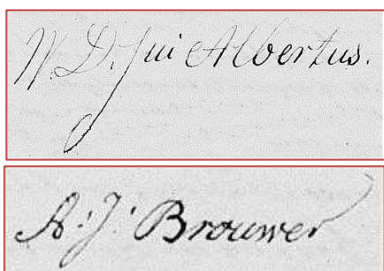 W. D. Jui Albertus.
A: J: Brouwer